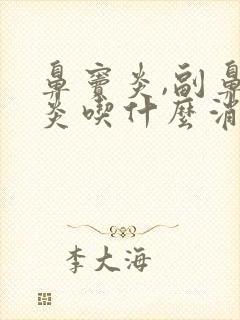 鼻竇炎,副鼻
炎喫什麼消
李大海